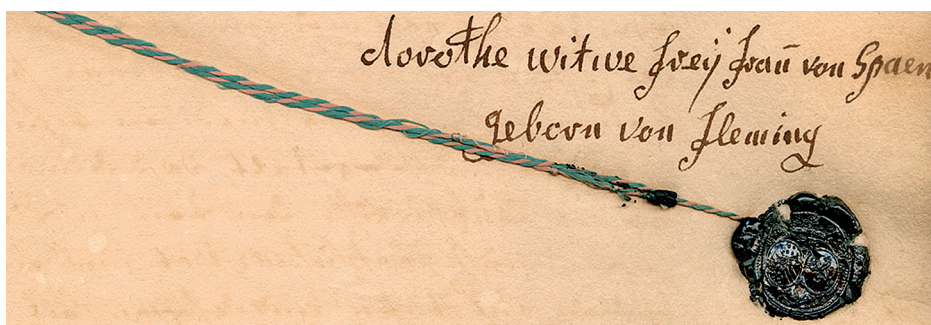 dorothe witwe freÿ fraū von Spaen
geborn von fleming